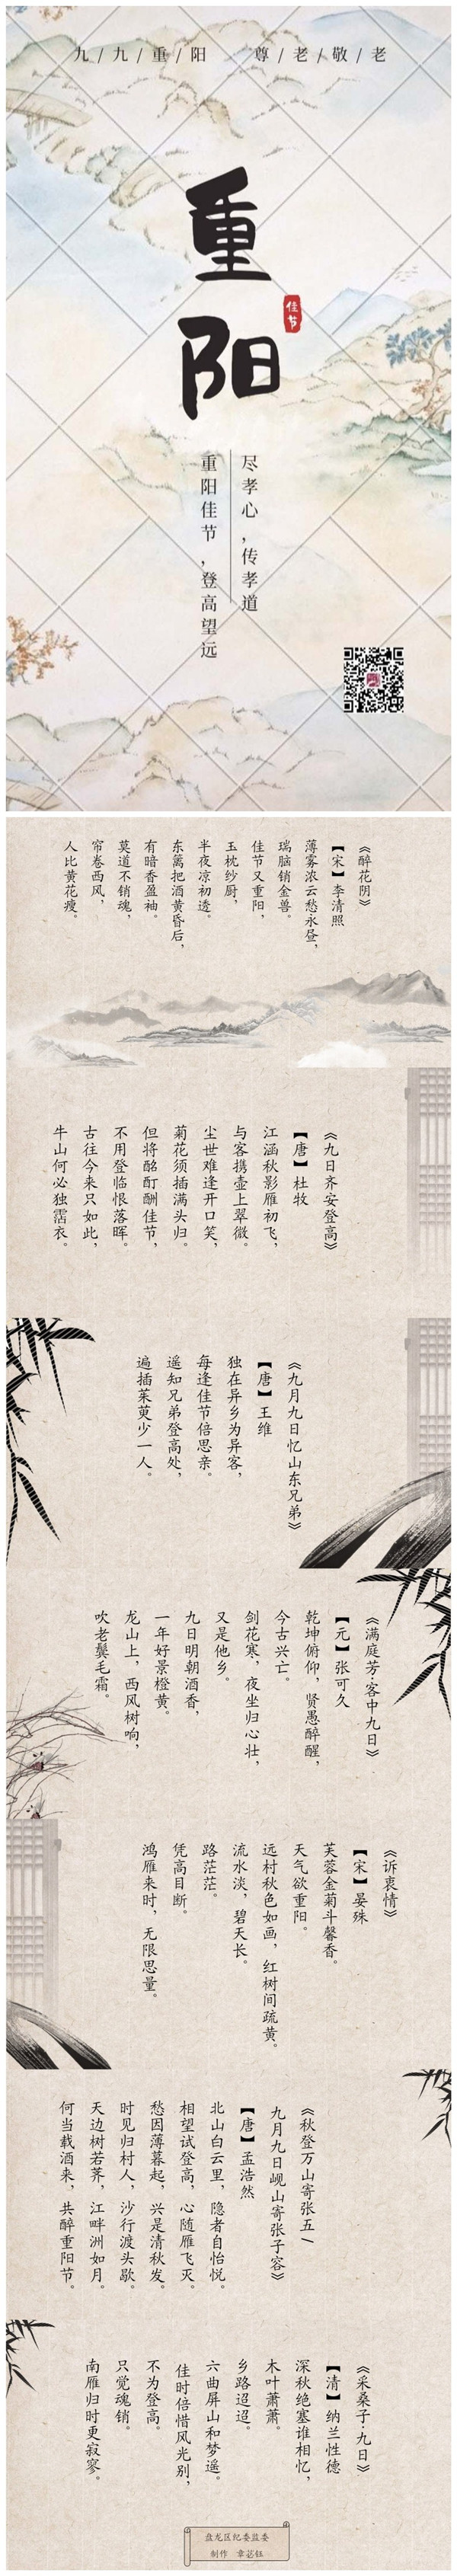 九/九/重/阳 尊/老/敬/老
重阳
佳节
尽孝心，传孝道
重阳佳节，登高望远
《醉花阴》
【宋】李清照
薄雾浓云愁永昼，
瑞脑销金兽。
佳节又重阳，
玉枕纱厨，
半夜凉初透。
东篱把酒黄昏后，
有暗香盈袖。
莫道不销魂，
帘卷西风，
人比黄花瘦。
《九日齐安登高》
【唐】杜牧
江涵秋影雁初飞，
与客携壶上翠微。
尘世难逢开口笑，
菊花须插满头归。
但将酩酊酬佳节，
不用登临恨落晖。
古往今来只如此，
牛山何必独霑衣。
《九月九日忆山东兄弟》
【唐】王维
独在异乡为异客，
每逢佳节倍思亲。
遥知兄弟登高处，
遍插茱萸少一人。
《满庭芳·客中九日》
【元】张可久
乾坤俯仰，贤愚醉醒，
今古兴亡。
剑花寒，夜坐归心壮，
又是他乡。
九日明朝酒香，
一年好景橙黄。
龙山上，西风树响，
吹老鬓毛霜。
《诉衷情》
【宋】晏殊
芙蓉金菊斗馨香。
天气欲重阳。
远村秋色如画，红树间疏黄。
流水淡，碧天长。
路茫茫。
凭高目断。
鸿雁来时，无限思量。
《秋登万山寄张五/
九月九日岘山寄张子容》
【唐】孟浩然
北山白云里，隐者自怡悦。
相望试登高，心随雁飞灭。
愁因薄暮起，兴是清秋发。
时见归村人，沙行渡头歇。
天边树若荠，江畔洲如月。
何当载酒来，共醉重阳节。
《采桑子·九日》
【清】纳兰性德
深秋绝塞谁相忆，
木叶萧萧。
乡路迢迢。
六曲屏山和梦遥。
佳时倍惜风光别，
不为登高。
只觉魂销。
南雁归时更寂寥。
盘龙区纪委监委
制作 章苾钰